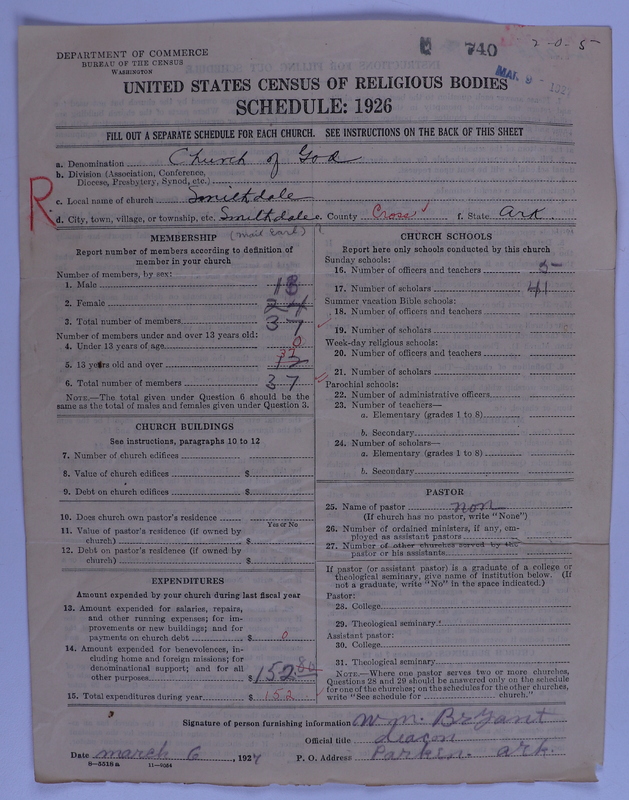 740 2-0-5
MAR 9 - 1927
DEPARTMENT OF COMMERCE
BUREAU OF THE CENSUS
WASHINGTON
UNITED STATES CENSUS OF RELIGIOUS BODIES
SCHEDULE: 1926
FILL OUT A SEPARATE SCHEDULE FOR EACH CHURCH. SEE INSTRUCTIONS ON THE BACK OF THIS SHEET
a. Denomination Church of God
b. Division (Association, Conference,
Diocese, Presbytery, Synod, etc.)
R
c. Local name of church Smithdale
d. City, town, village, or township, etc. Smithdale e. County Cross f. State Ark
(mail Earl) ?
MEMBERSHIP
Report number of members according to definition of
member in your church
Number of members, by sex:
1. Male 13
2. Female 24
3. Total number of members 37
Number of members under and over 13 years old:
4. Under 13 years of age 0
5. 13 years old and over 37
6. Total number of members 37
NOTE.—The total given under Question 6 should be the
same as the total of males and females given under Question 3.
CHURCH BUILDINGS
See instructions, paragraphs 10 to 12
7. Number of church edifices
8. Value of church edifices $
9. Debt on church edifices $
10. Does church own pastor's residence
Yes or No
11. Value of pastor's residence (if owned by
church) $
12. Debt on pastor's residence (if owned by
church) $
EXPENDITURES
Amount expended by your church during last fiscal year
13. Amount expended for salaries, repairs,
and other running expenses; for im-
provements or new buildings; and for
payments on church debt $ 0
14. Amount expended for benevolences, in-
cluding home and foreign missions; for
denominational support; and for all
other purposes $ 152 80
15. Total expenditures during year $ 152
CHURCH SCHOOLS
Report here only schools conducted by this church
Sunday schools:
16. Number of officers and teachers 5
17. Number of scholars 41
Summer vacation Bible schools:
18. Number of officers and teachers
19. Number of scholars
Week-day religious schools:
20. Number of officers and teachers
21. Number of scholars
Parochial schools:
22. Number of administrative officers
23. Number of teachers—
a. Elementary (grades 1 to 8)
b. Secondary
24. Number of scholars—
a. Elementary (grades 1 to 8)
b. Secondary
PASTOR
25. Name of pastor non
(If church has no pastor, write "None")
26. Number of ordained ministers, if any, em-
ployed as assistant pastors
27. Number of other churches served by the
pastor or his assistants
If pastor (or assistant pastor) is a graduate of a college or
theological seminary, give name of institution below. (If
not a graduate, write "No" in the space indicated.)
Pastor:
28. College
29. Theological seminary
Assistant pastor:
30. College
31. Theological seminary
NOTE.—Where one pastor serves two or more churches,
Questions 28 and 29 should be answered only on the schedule
for one of the churches; on the schedules for the other churches,
write "See schedule for church."
Signature of person furnishing information Wm. Bryant
Official title deacon
Date march 6, 1927 P. O. Address Parkin. ark.
8-5518a 11-9034